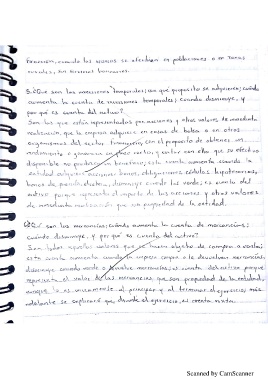 financiera, cuando los mismos se efectúan en poblaciones o en zonas
rurales, sin servicios bancarios.
5. ¿Que son las inversiones temporales; con qué propósito se adquieren; cuándo
aumenta la cuenta de inversiones temporales; cuando disminuye, y
por qué es cuenta del activo?
Son las que están representadas por acciones y otros valores de inmediata
realización, que la empresa adquiere en casas de bolsa o en otros
organismos del sector financiero, con el propósito de obtener un
rendimiento o ganancia en plazo corto, y evitar con ello que su efectivo
disponible no produzca un beneficio; esta cuenta aumenta cuando la
entidad adquiere acciones, bonos, obligaciones, cédulas hipotecarias,
bonos de prenda, etcétera, disminuye cuando las vende; es cuenta del
activo porque representa el importe de las acciones y otros valores
de inmediata realización que son propiedad de la entidad.
6 ¿Qué son las mercancías; cuándo aumenta la cuenta de mercancías;
cuándo disminuye, y por qué es cuenta del activo?
Son todos aquellos valores que se hacen objeto de compra o venta;
esta cuenta aumenta cuando la empresa compra o le devuelven mercancías,
disminuye cuando vende o devuelve mercancías; es cuenta del activo porque
representa el valor de las mercancías, que son propiedad de la entidad,
aunque lo es únicamente al principiar y al terminar el ejercicio; más
adelante se explicará que, durante el ejercicio, es cuenta mixta.
Scanned by CamScanner